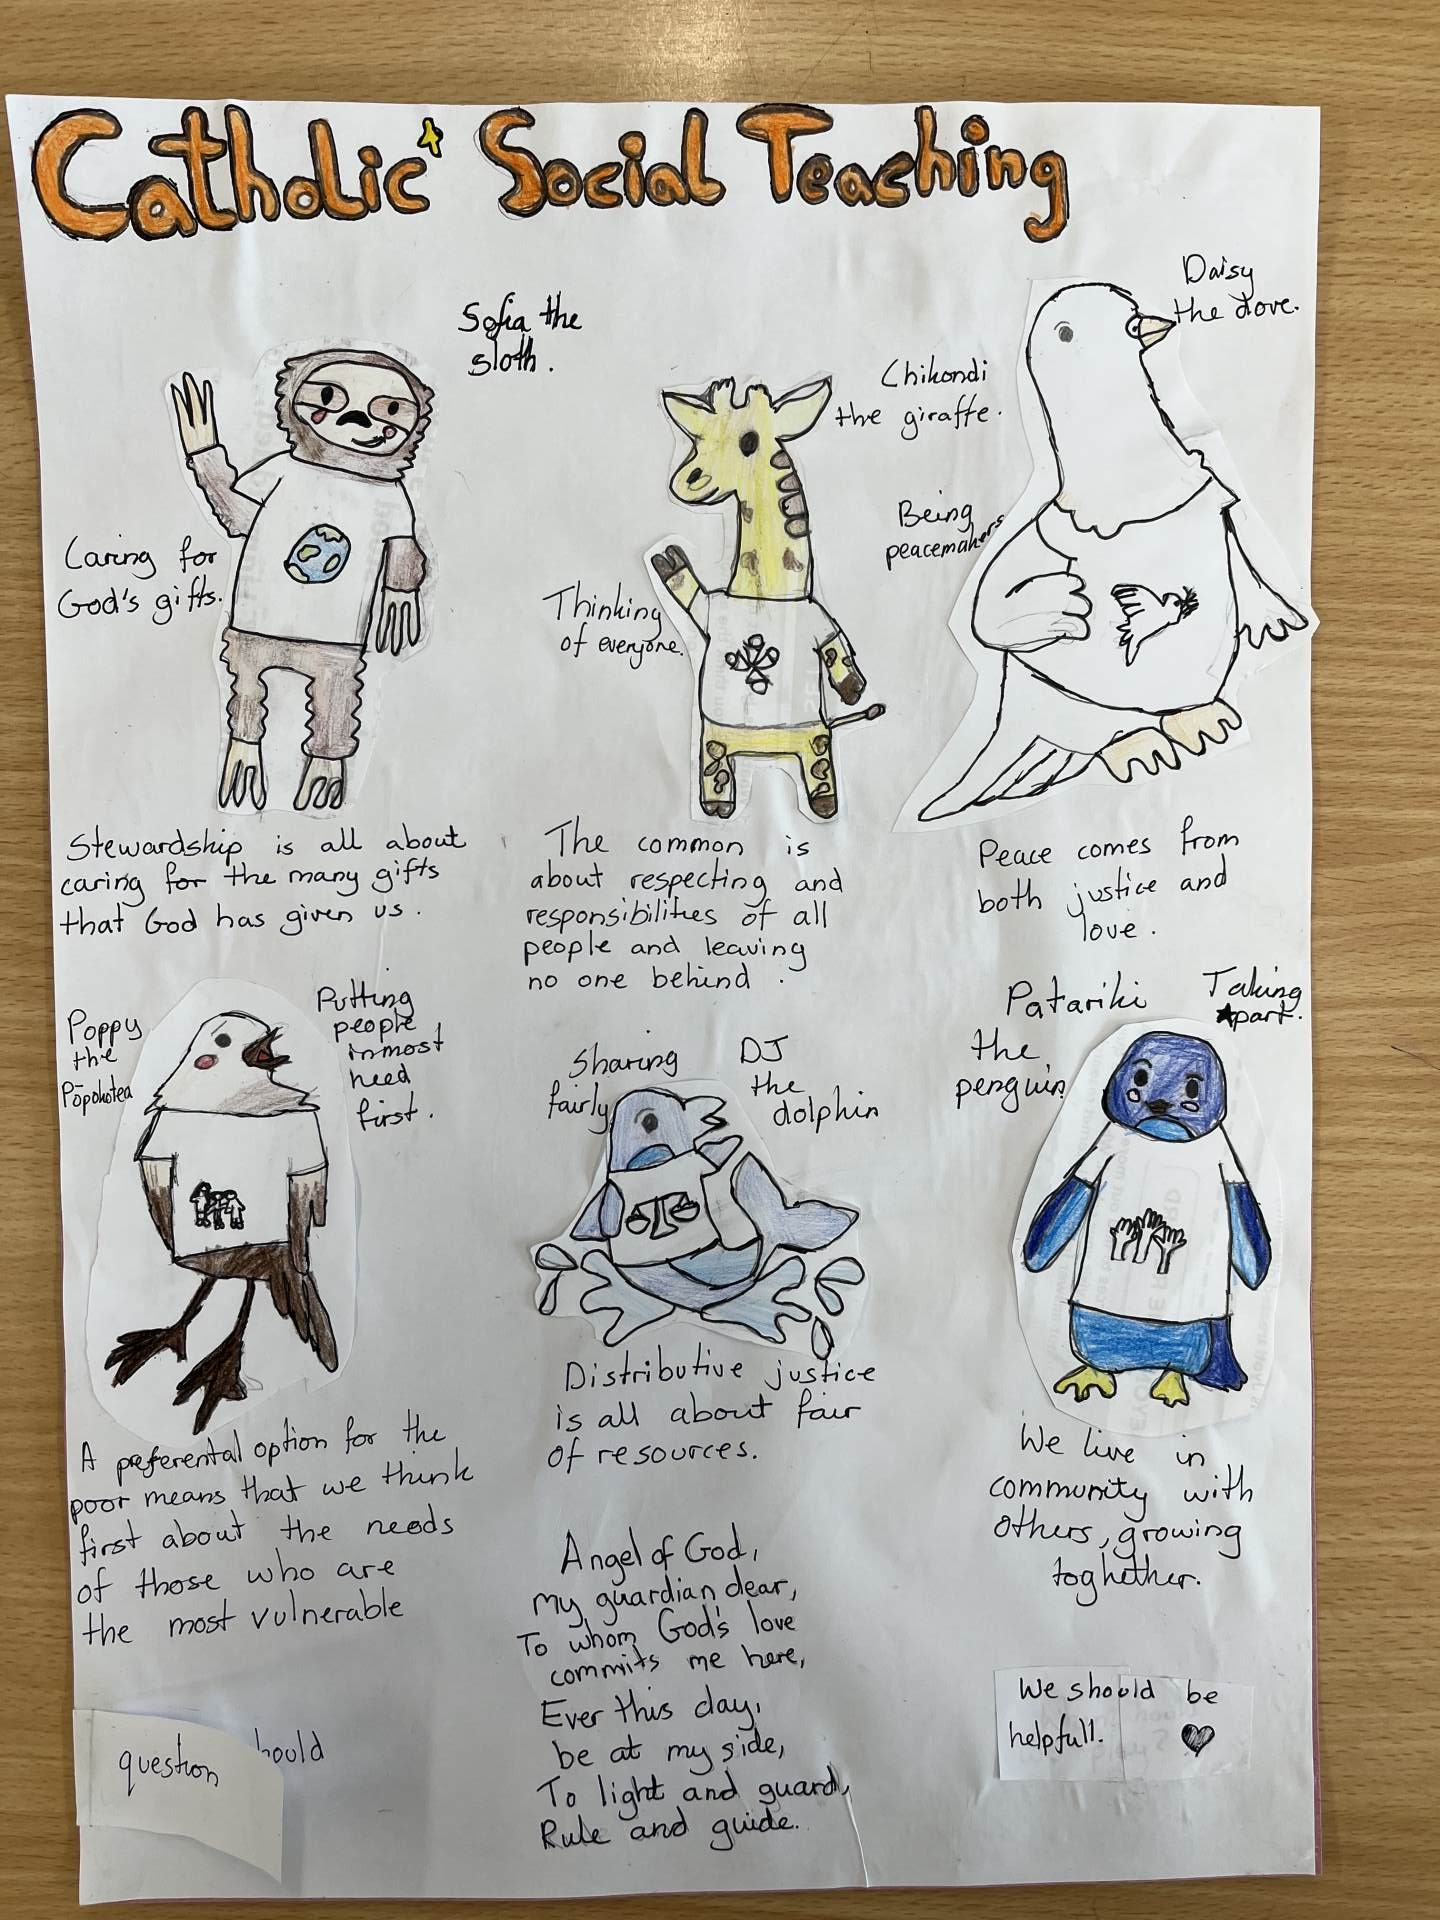 Catholic Social Teaching
Sofia the
sloth.
Caring for
God's gifts.
Stewardship is all about
caring for the many gifts
that God has given us.
Chikondi
the giraffe.
Thinking
of everyone.
The common is
about respecting and
responsibilities of all
people and leaving
no one behind.
Daisy
the dove.
Being
peacemakers
Peace comes from
both justice and
love.
Poppy
the
Pōpokotea
Putting
people
inmost
need
first.
A preferental option for the
poor means that we think
first about the needs
of those who are
the most vulnerable
Sharing
fairly
DJ
the
dolphin
Distributive justice
is all about fair
of resources.
Patariki
the
penguin
Taking
part.
We live in
community with
others, growing
toghether.
Angel of God,
my guardian dear,
To whom God's love
commits me here,
Ever this day,
be at my side,
To light and guard,
Rule and guide.
question hould
We should be
helpfull.